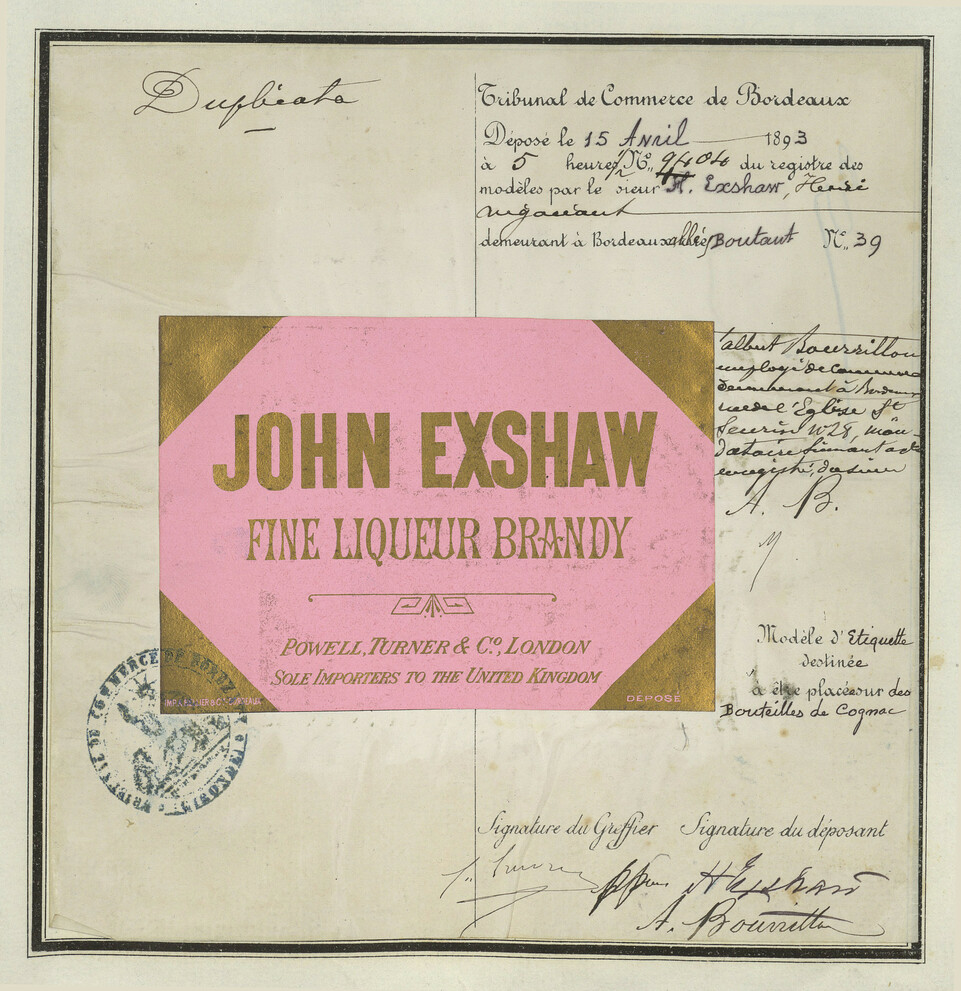 Duplicata
Tribunal de Commerce de Bordeaux
Déposé le 15 Avril 1893
à 5 heures N° 9404 du registre des
modèles par le sieur H. Exshaw, Henri
négociant
demeurant à Bordeaux allées Boutant N° 39
JOHN EXSHAW
FINE LIQUEUR BRANDY
POWELL, TURNER & Co., LONDON
SOLE IMPORTERS TO THE UNITED KINGDOM
DÉPOSÉ
albert Bourrillon
employé de commerce
demeurant à Bordeaux
rue de l'Eglise St
Seurin N° 28, man-
dataire suivant acte
enregistré, du sieur
A. B.
Modèle d'Etiquette
destinée
à être placée sur des
Bouteilles de Cognac
TRIBUNAL DE COMMERCE DE BORDEAUX
Signature du Greffier Signature du déposant
ppon H Exshaw
A. Bourrillon